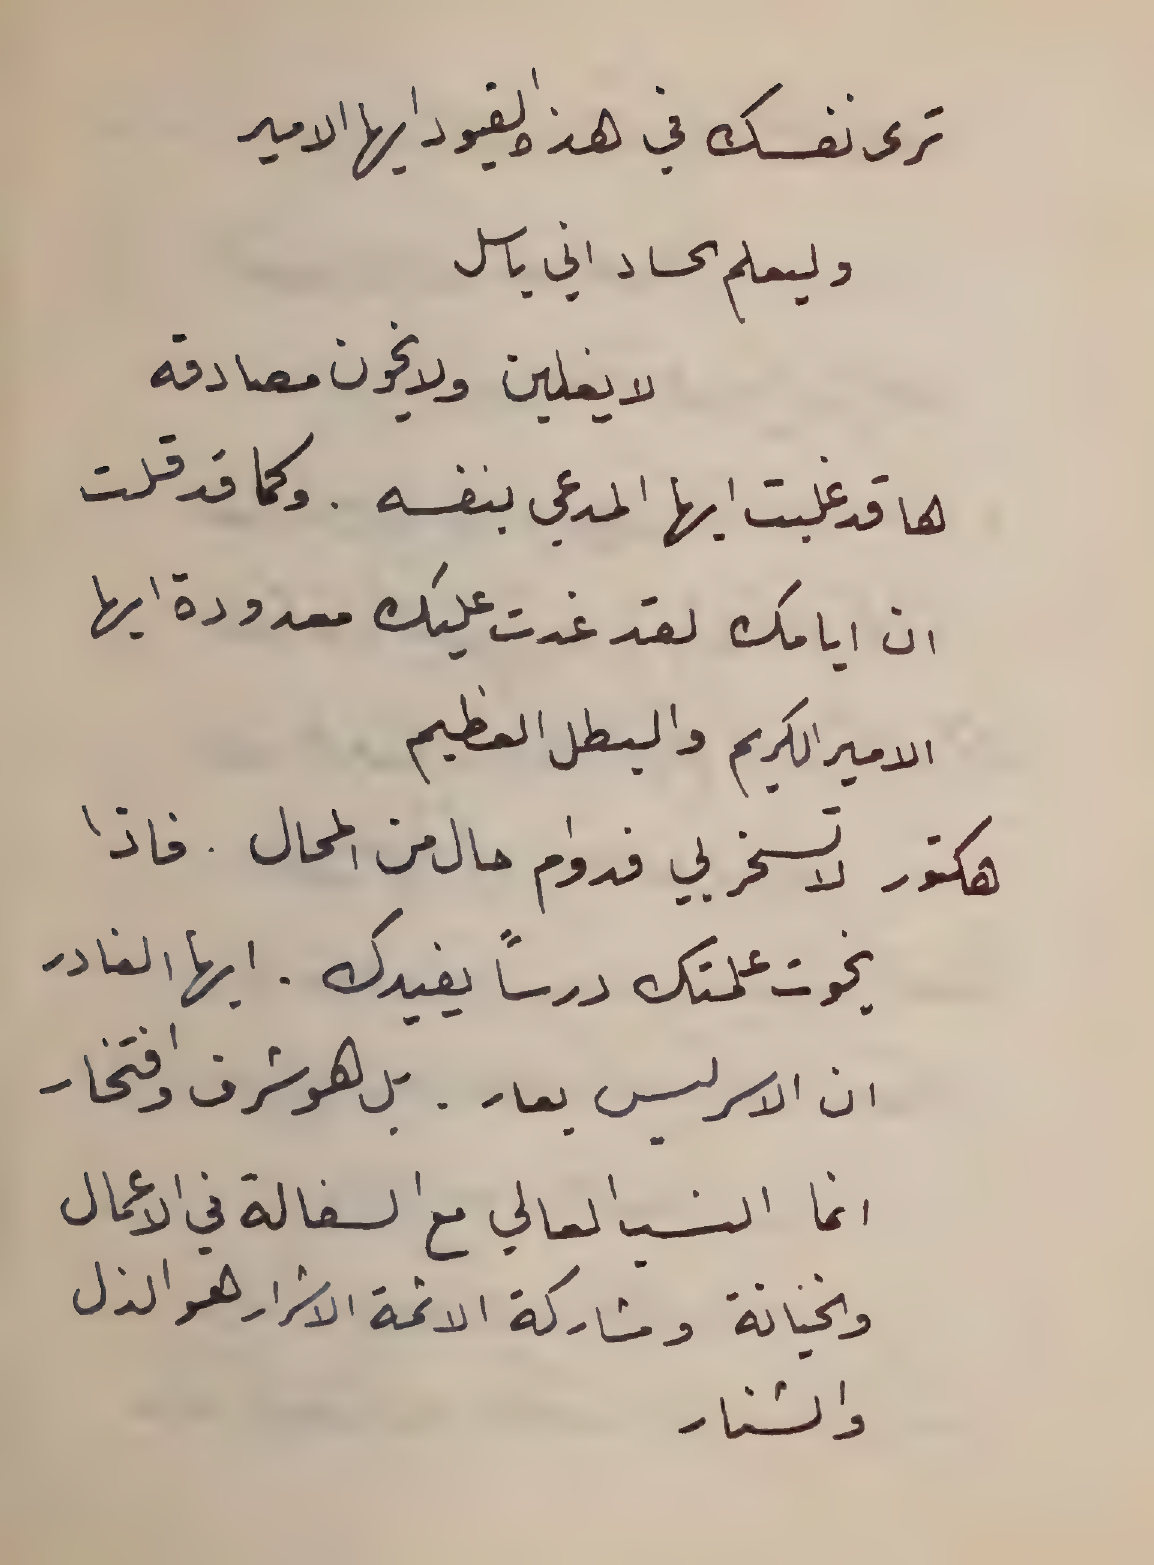 ترى نفسك في هذه القيود ايها الامير
وليعلم الحساد اني باسل
لا يغلبن ولا يخون مصادقه
ها قد غلبت ايها المدعي بنفسه . وكما قد قلت
ان ايامك لقد غدت عليك معدودة ايها
الامير الكريم والبطل العظيم
هكتور لا تسخر بي فدوام حال من المحال . فاذا
نجوت علمتك درساً يفيدك . ايها الغادر
ان الاسر ليس بعار . بل هو شرف وافتخار
انما النسب العالي مع السفالة في الاعمال
والخيانة ومشاركة الائمة الاشرار هو الذل
والشنار